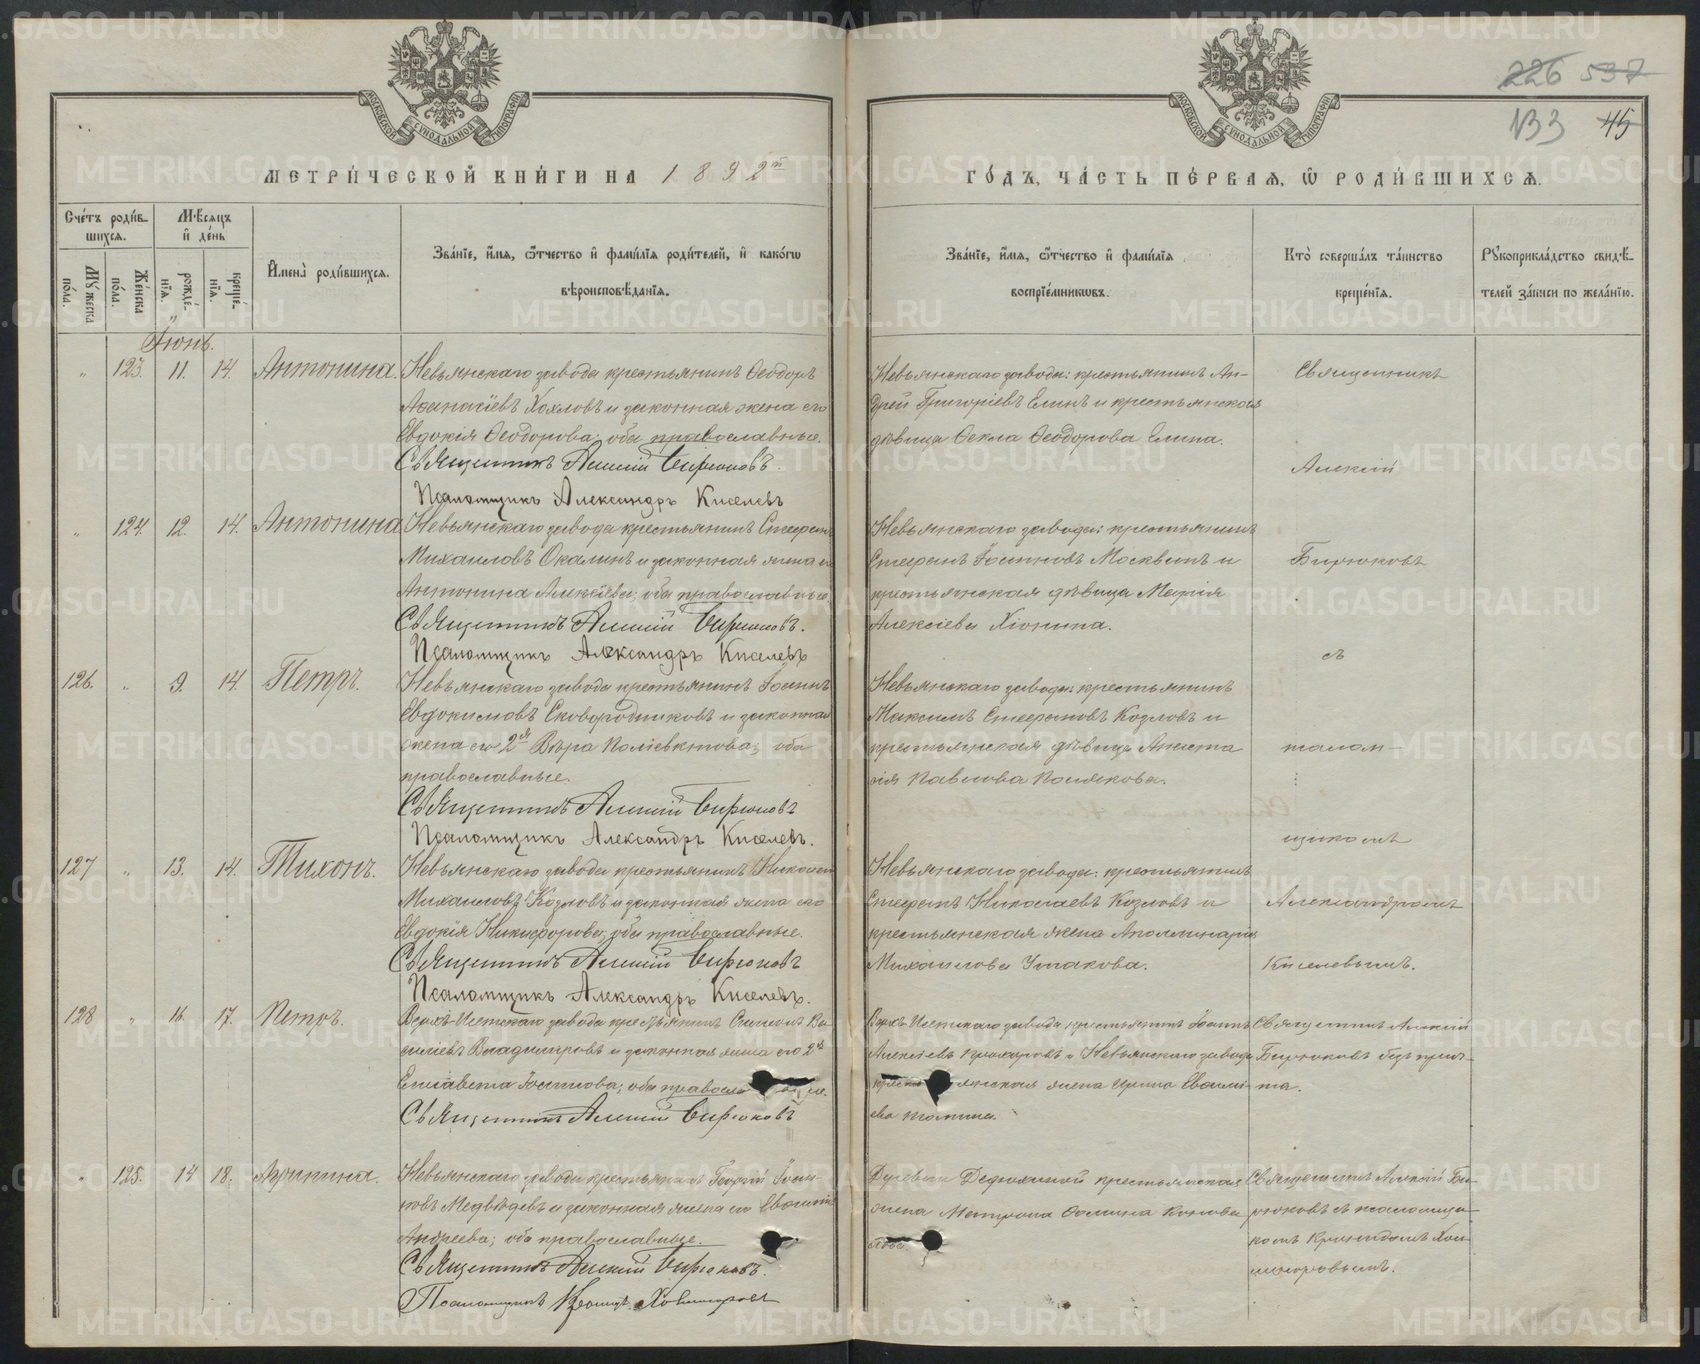 226 537
133 45
МЕТРИ́ЧЕСКОЙ КНИ́ГИ НА 1892й
ГО́ДЪ, ЧА́СТЬ ПЕ́РВАѦ, Ѡ РОДИ́ВШИХСѦ.
Сче́тъ роди́в-шихсѧ.
Мꙋ́жеска по́ла.
Же́нска по́ла.
Мѣ́сѧцъ и҆ де́нь
рожде́-нїѧ.
креще́-нїѧ.
И҆мена̀ роди́вшихсѧ.
Зва́нїе, и҆́мѧ, ѻ҆́тчество и҆ фами́лїѧ роди́телей, и҆ како́гѡ
вѣроисповѣ́данїѧ.
Зва́нїе, и҆́мѧ, ѻ҆́тчество и҆ фами́лїѧ
воспрїе́мникѡвъ.
Кто̀ соверша́лъ та́инство
креще́нїѧ.
Рꙋкоприкла́дство свидѣ́-
телей за́писи по жела́нїю.
Іюнь.
" 123. 11. 14. Антонина.
Невьянскаго завода крестьянинъ Ѳеодоръ
Аѳанасіевъ Хохловъ и законная жена его
Евдокія Ѳеодорова; оба православные.
Священникъ Алексій Бирюковъ.
Псаломщикъ Александръ Киселевъ
Невьянскаго завода: крестьянинъ Ан-
дрей Григоріевъ Елинъ и крестьянская
дѣвица Ѳекла Ѳеодорова Елина.
Священникъ
Алексій
" 124. 12. 14. Антонина
Невьянскаго завода крестьянинъ Стефанъ
Михаиловъ Окалинъ и законная жена его
Антонина Алексіева; оба православные.
Священникъ Алексій Бирюковъ.
Псаломщикъ Александръ Киселевъ
Невьянскаго завода: крестьянинъ
Стефанъ Іоанновъ Москвинъ и
крестьянская дѣвица Марія
Алексіева Хіонина.
Бирюковъ
съ
126. " 9. 14. Петръ.
Невьянскаго завода крестьянинъ Іоаннъ
Евдокимовъ Сковородниковъ и законная
жена его 2я Вѣра Поліевктова; оба
православные.
Священникъ Алексій Бирюковъ
Псаломщикъ Александръ Киселевъ.
Невьянскаго завода: крестьянинъ
Максимъ Стефановъ Козловъ и
крестьянская дѣвица Анаста
сія Павлова Полякова.
псалом-
щикомъ
127 " 13. 14. Тихонъ.
Невьянскаго завода крестьянинъ Николай
Михаиловъ Козловъ и законная жена его
Евдокія Никифорова; оба православные.
Священникъ Алексій Бирюковъ
Псаломщикъ Александръ Киселевъ.
Невьянскаго завода: крестьянинъ
Стефанъ Николаевъ Козловъ и
крестьянская жена Аполлинарія
Михаилова Ушакова.
Александромъ
Киселевымъ.
128 " 16. 17. Петръ.
Верхъ-Исетскаго завода крестьянинъ Симеонъ Ва-
силіевъ Владиміровъ и законная жена его 2я
Елисавета Іоаннова; оба правосла ные.
Священникъ Алексій Бирюковъ
Верхъ-Исетскаго завода крестьянинъ Іоаннъ
Алексіевъ Прохоровъ и Невьянскаго завода
кресть янская жена Ирина Евѳимі-
ева
Священникъ Алексій
Бирюковъ безъ прич-
та.
" 125. 14 18. Агрипина.
Невьянскаго завода крестьянинъ Георгій Іоан-
новъ Медвѣдевъ и законная жена его
Андреева; оба православные.
Священникъ Алексій Бирюковъ.
Псаломщикъ
Деревни крестьянская
жена Матрона
Священникъ Алексій Би-
рюковъ съ псаломщи-
комъ